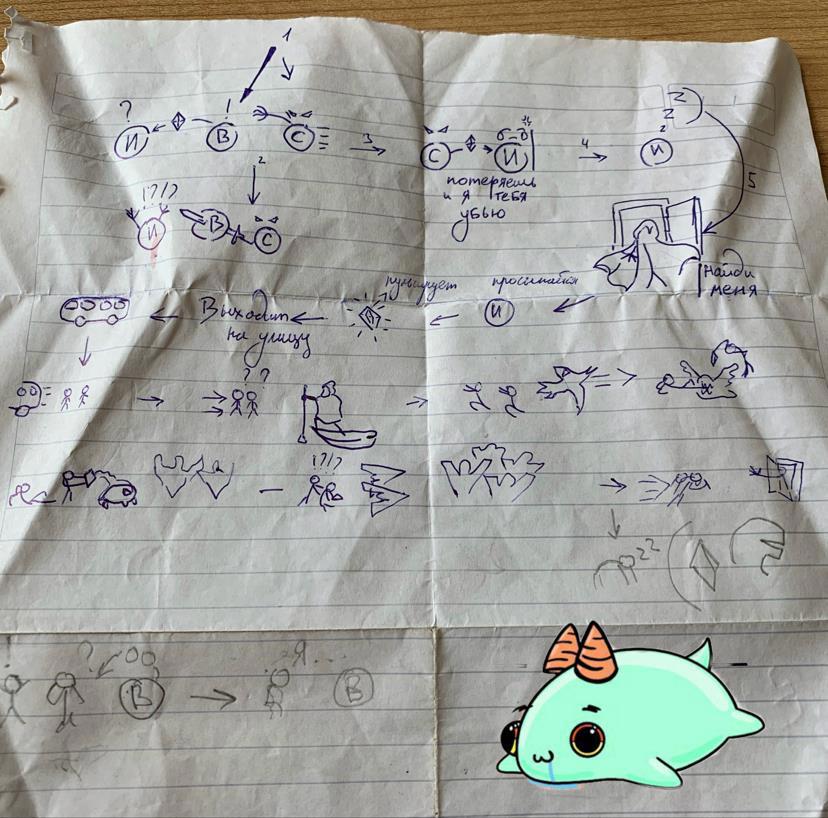 1
? !
И В С
3
С И
4
z z Z
И
5
2
!?!?
И В С
потеряешь
и я тебя
убью
найди
меня
просыпается
пульсирует
И
Выходит
на улицу
? ?
!?!?
?
В
Я...
В